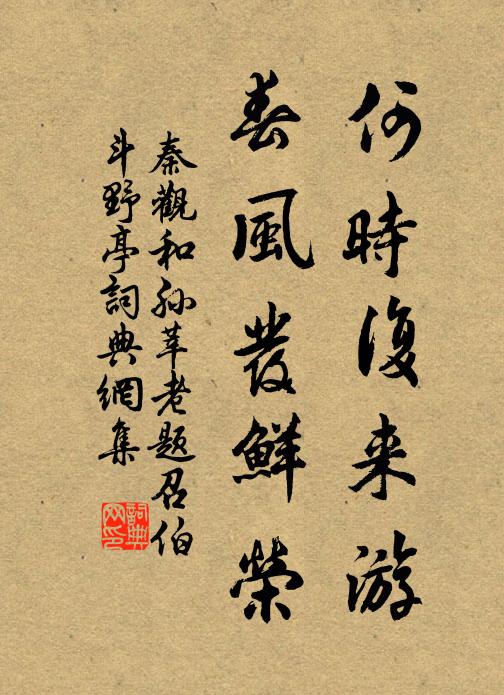 何時復来游
春風發鮮榮
秦觀和孫莘老題召伯
斗野亭詞典網集
詞典
网印